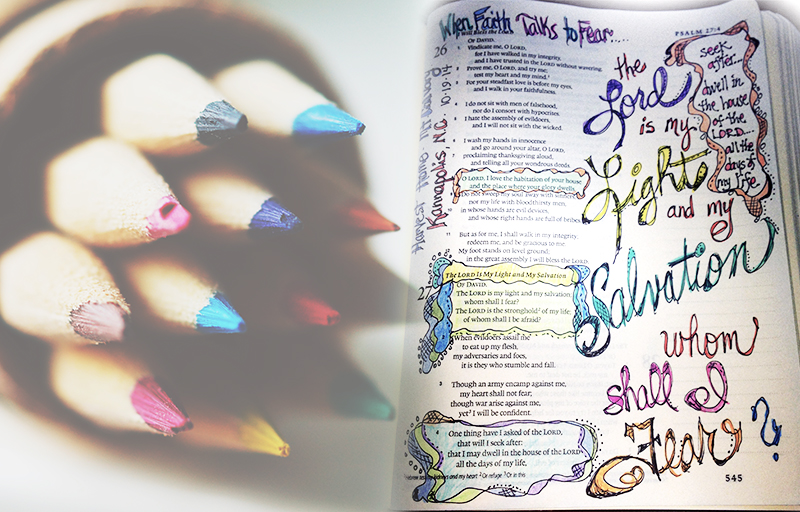 When Faith Talks to Fear....
Will Bless the LORD
PSALM 27:4
26
OF DAVID.
Vindicate me, O LORD,
for I have walked in my integrity,
and I have trusted in the LORD without wavering.
Prove me, O LORD, and try me;
test my heart and my mind.
For your steadfast love is before my eyes,
and I walk in your faithfulness.
I do not sit with men of falsehood,
nor do I consort with hypocrites.
I hate the assembly of evildoers,
and I will not sit with the wicked.
I wash my hands in innocence
and go around your altar, O LORD,
proclaiming thanksgiving aloud,
and telling all your wondrous deeds.
O LORD, I love the habitation of your house
and the place where your glory dwells.
Do not sweep my soul away with sinners,
nor my life with bloodthirsty men,
in whose hands are evil devices,
and whose right hands are full of bribes.
But as for me, I shall walk in my integrity;
redeem me, and be gracious to me.
My foot stands on level ground;
in the great assembly I will bless the LORD.
The LORD Is My Light and My Salvation
2
OF DAVID.
The LORD is my light and my salvation;
whom shall I fear?
The LORD is the stronghold of my life;
of whom shall I be afraid?
When evildoers assail me
to eat up my flesh,
my adversaries and foes,
it is they who stumble and fall.
Though an army encamp against me,
my heart shall not fear;
though war arise against me,
yet I will be confident.
One thing have I asked of the LORD,
that will I seek after:
that I may dwell in the house of the LORD
all the days of my life,
and my heart 2 Or refuge 3 Or in this
the
Lord
is my
Light
and my
Salvation
whom
shall I
Fear?
seek
after...
dwell in
the house
of the
LORD...
all the
days of
my life
545